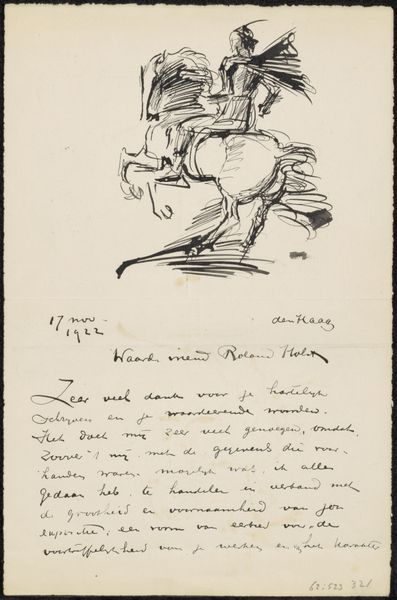 17 nov - den Haag
1922
Waarde vriend Roland Holst
Zeer veel dank voor je hartelijk
schrijven en je waardeerende woorden.
Het doet mij zeer veel genoegen, omdat
Zoover 't mij met de gegevens die voor-
handen waren mogelijk was, ik alles
gedaan heb, te handelen in verband met
de grootheid en voornaamheid van jou
expositie; een vorm van eerbied voor de
voortreffelijkheid van je werken en
62:523 321